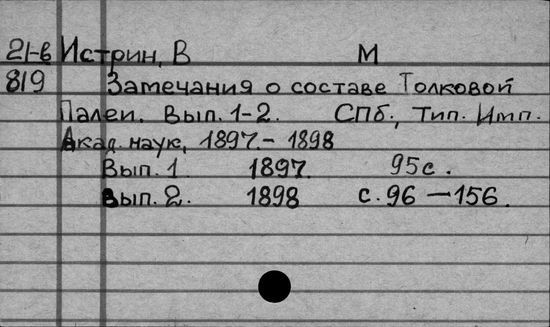 21-в Истрин, В М
819 Замечания о составе Толковой
Палеи. Вып. 1-2. СПб., Тип. Имп.
Акад. наук, 1897.- 1898
Вып. 1. 1897. 95с.
Вып. 2. 1898 с. 96 — 156.